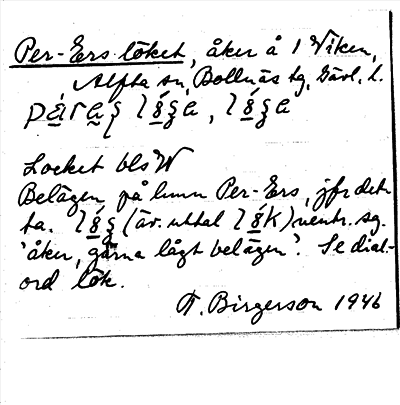 Per-Ers löket, åker å 1 Viken,
Alfta sn, Bollnäs tg, Gävl. l.
Locket bls W
Belägen på hmn Per-Ers, jfr det-
ta. (äv. uttal) neutr. sg.
'åker, gärna lågt belägen'. Se dial-
ord lök.
T. Birgerson 1946